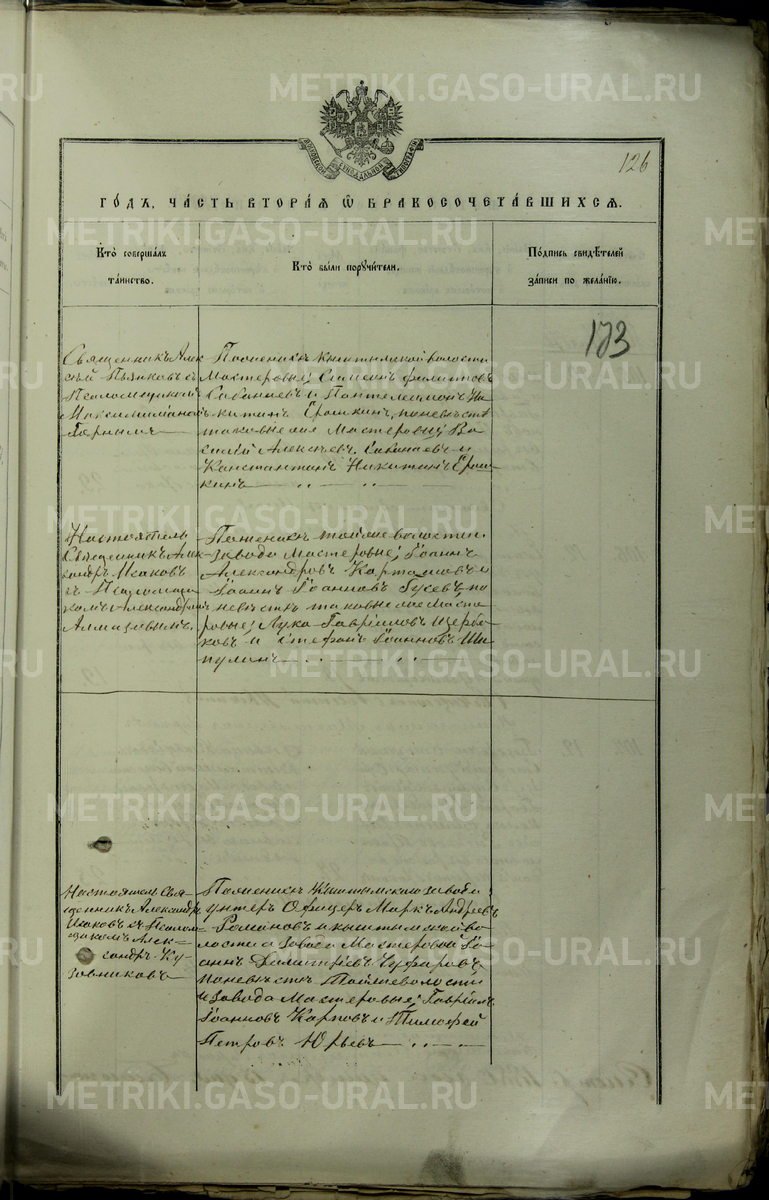 126
ГОДЪ, ЧАСТЬ ВТОРАЯ Ѡ БРАКОСОЧЕТАВШИХСЯ.
Кто совершалъ
таинство.
Кто были поручители.
Подпись свидѣтелей
записи по желанію.
173
Священникъ Алек
сѣй Пьянковъ съ
Псаломщикомъ
Горнымъ
По женихѣ Кыштымской волости
Мастеровые, Симеонъ Филипповъ
Сабанаевъ и Пантелеимонъ Ни
китинъ Ерошкинъ, по невѣстѣ
таковые же Мастеровые, Ва
силій Алексѣевъ Сабанаевъ и
Константинъ Никитинъ Ерош
кинъ
Настоятель
Священникъ Алек
сандръ Исаковъ
съ Псаломщи
комъ Александромъ
Алмазовымъ.
По женихѣ той же волости и
завода Мастеровые, Іоаннъ
Александровъ Карташовъ и
Іоаннъ Іоанновъ Гусевъ, по
невѣстѣ таковые же Масте
ровые, Лука Гавріиловъ Щерба
ковъ и Стефанъ Іоанновъ Ши
пулинъ
Настоятель Свя
щенникъ Александръ
Исаковъ съ Псалом
щикомъ Алек
сандръ Ку
зовниковъ
По женихѣ Кыштымскаго завода
унтеръ Офицеръ Маркъ Андреевъ
Романовъ и Кыштымской во
лости и завода Мастеровой Іо
аннъ Димитріевъ Чуфаровъ
по невѣстѣ той же волости
и завода Мастеровые, Гавріилъ
Іоанновъ Карповъ и Тимофей
Петровъ Юрьевъ
METRIKI.GASO-URAL.RU